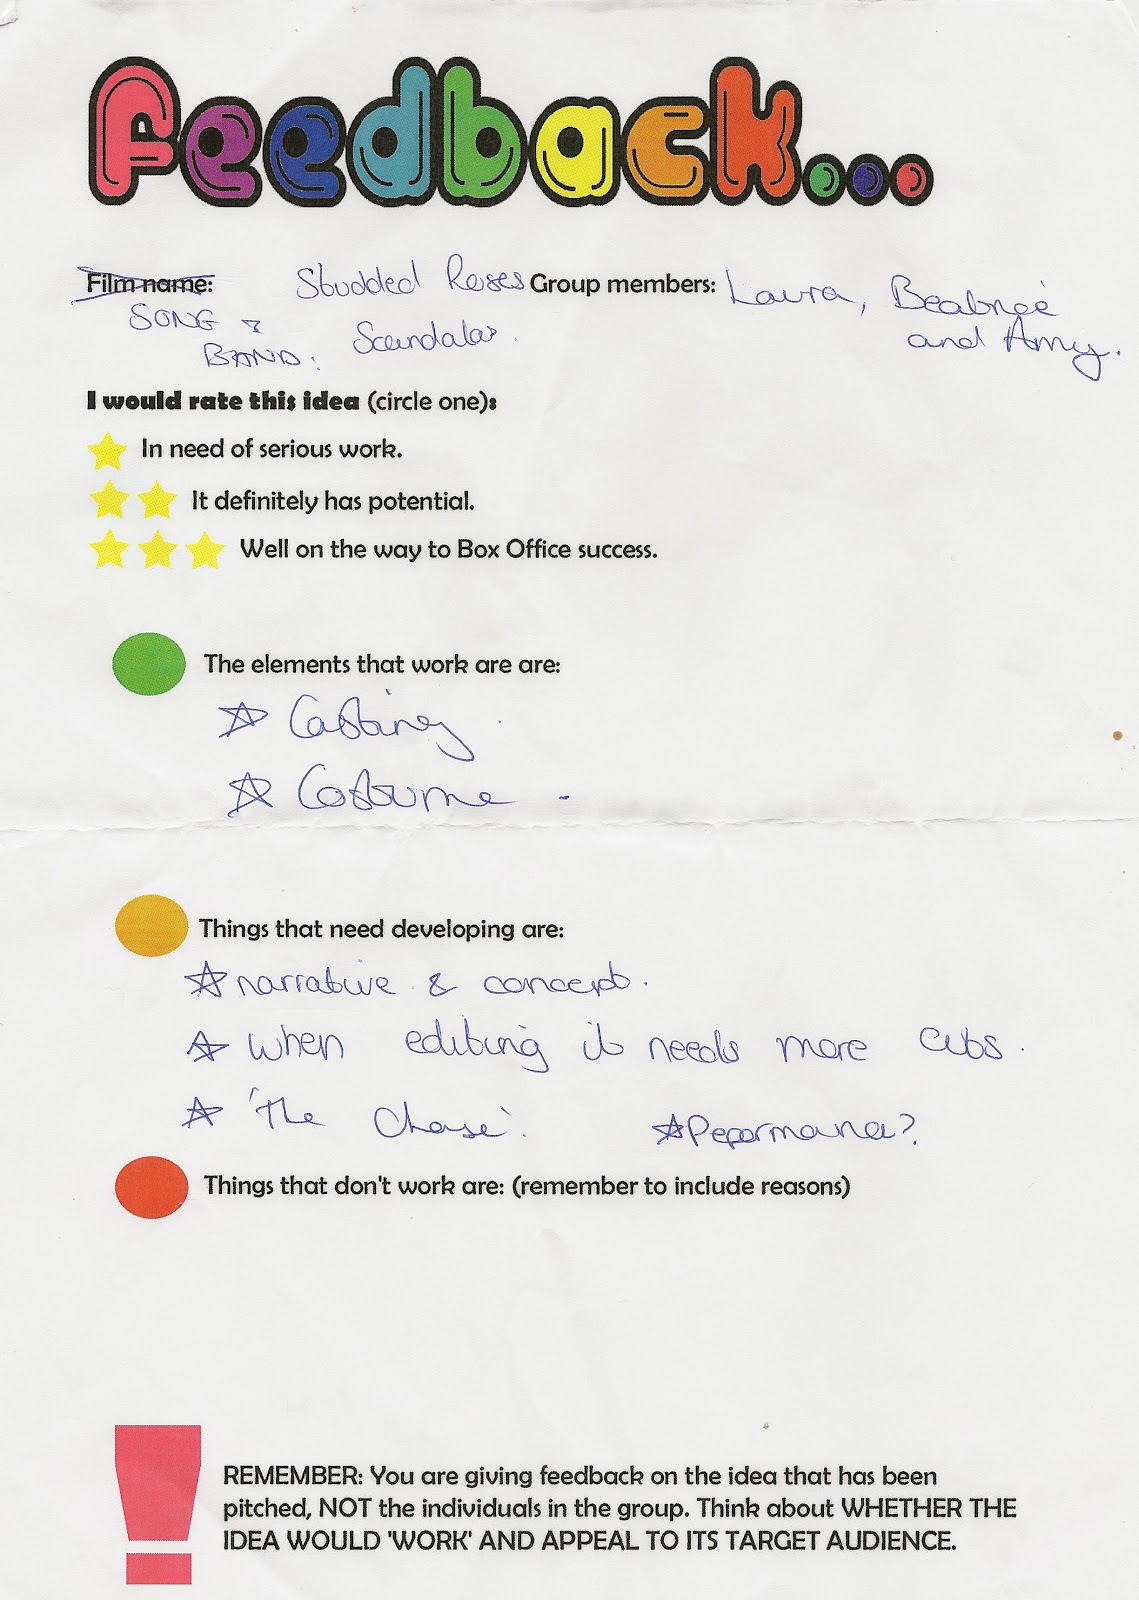 Feedback...
Film name: Studded Roses Group members: Laura, Beatrice
SONG & BAND: Scandalas. and Amy.
I would rate this idea (circle one):
In need of serious work.
It definitely has potential.
Well on the way to Box Office success.
The elements that work are are:
Casting.
Costume -
Things that need developing are:
narrative & concept.
When editing it needs more cuts.
'The Chase'. Peformance?
Things that don't work are: (remember to include reasons)
REMEMBER: You are giving feedback on the idea that has been
pitched, NOT the individuals in the group. Think about WHETHER THE
IDEA WOULD 'WORK' AND APPEAL TO ITS TARGET AUDIENCE.